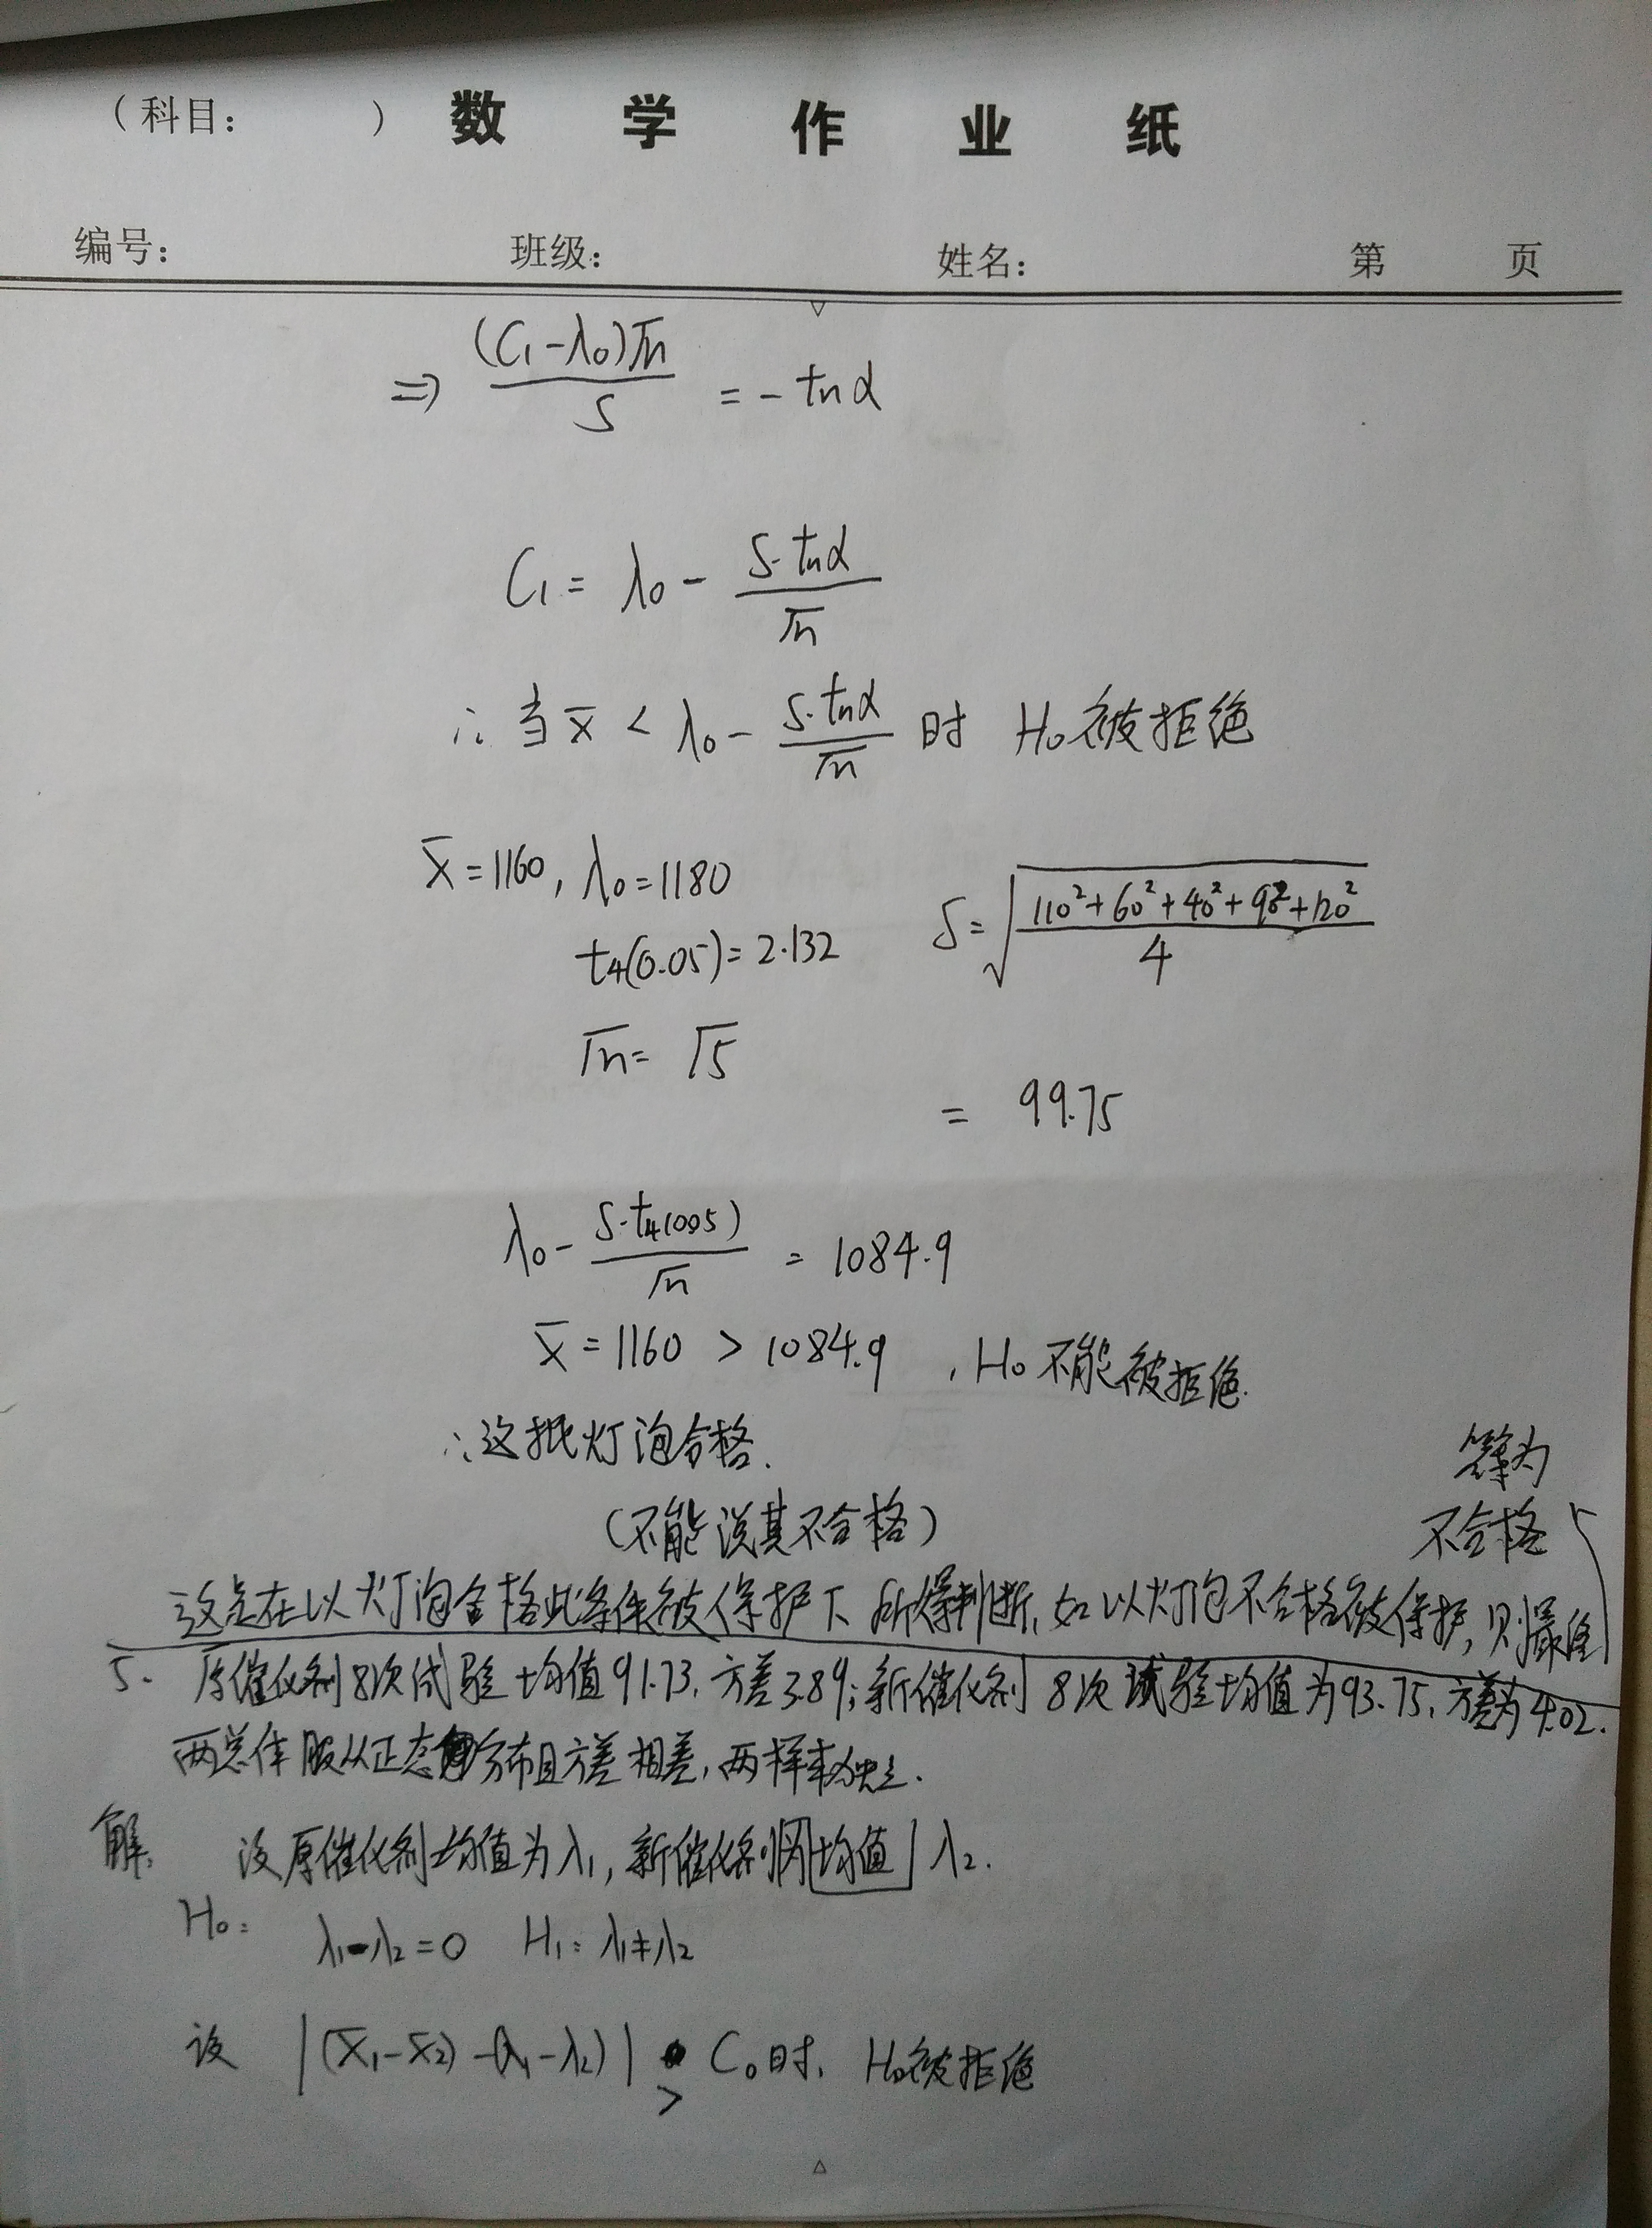 （科目:　　） 数学作业纸
编号:　　班级:　　姓名:　　第　　页
⇒ (C₁-λ₀)√n / S = - tnα
C₁ = λ₀ - S·tnα / √n
∴ 当 x̄ < λ₀ - S·tnα / √n 时 H₀被拒绝
x̄=1160, λ₀=1180　S=√((110²+60²+40²+90²+120²) / 4)
t₄(0.05)=2.132
√n= √5
= 99.75
λ₀ - S·t₄(0.05) / √n = 1084.9
x̄ = 1160 > 1084.9 , H₀不能被拒绝.
∴这批灯泡合格.
(不能说其不合格)
这是在以灯泡合格此条件被保护下所得判断, 如以灯泡不合格被保护, 则最终
答案为
不合格
5. 原催化剂8次试验均值91.73, 方差3.89; 新催化剂8次试验均值为93.75, 方差为4.02.
两总体服从正态分布且方差相差, 两样本独立.
解, 设原催化剂均值为λ₁, 新催化剂均值 λ₂.
H₀: λ₁-λ₂=0　H₁: λ₁≠λ₂
设 |(x̄₁-x̄₂)-(λ₁-λ₂)| > C₀时, H₀被拒绝